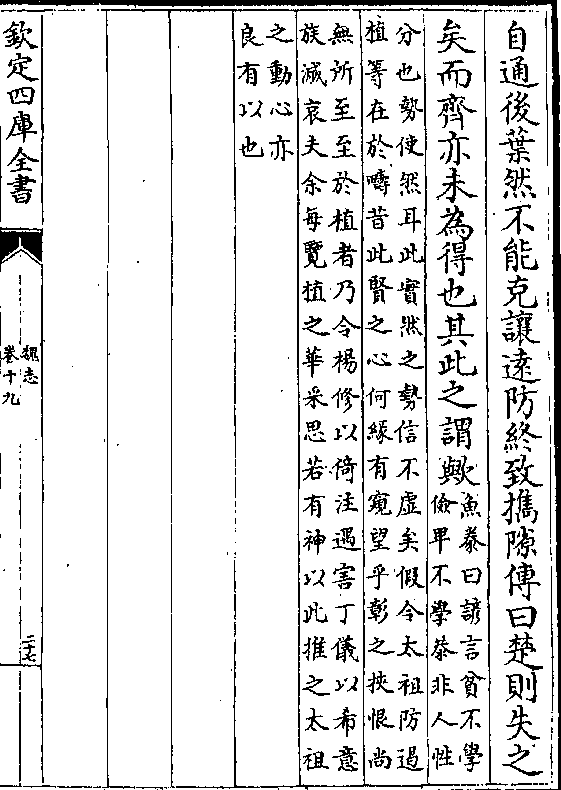 自通後葉然不能克讓逺防終致攜隙傳曰楚則失之
矣而齊亦未為得也其此之謂歟
魚豢曰諺言貧不學
儉卑不學恭非人性
分也勢使然耳此實然之勢信不虚矣假令太祖防遏
植等在於疇昔此賢之心何緣有窺望乎彰之挾恨尚
無所至至於植者乃令楊修以倚注遇害丁儀以希意
族滅哀夫余每覽植之華采思若有神以此推之太祖
之動心亦
良有以也
欽定四庫全書
魏志
卷十九
二十七